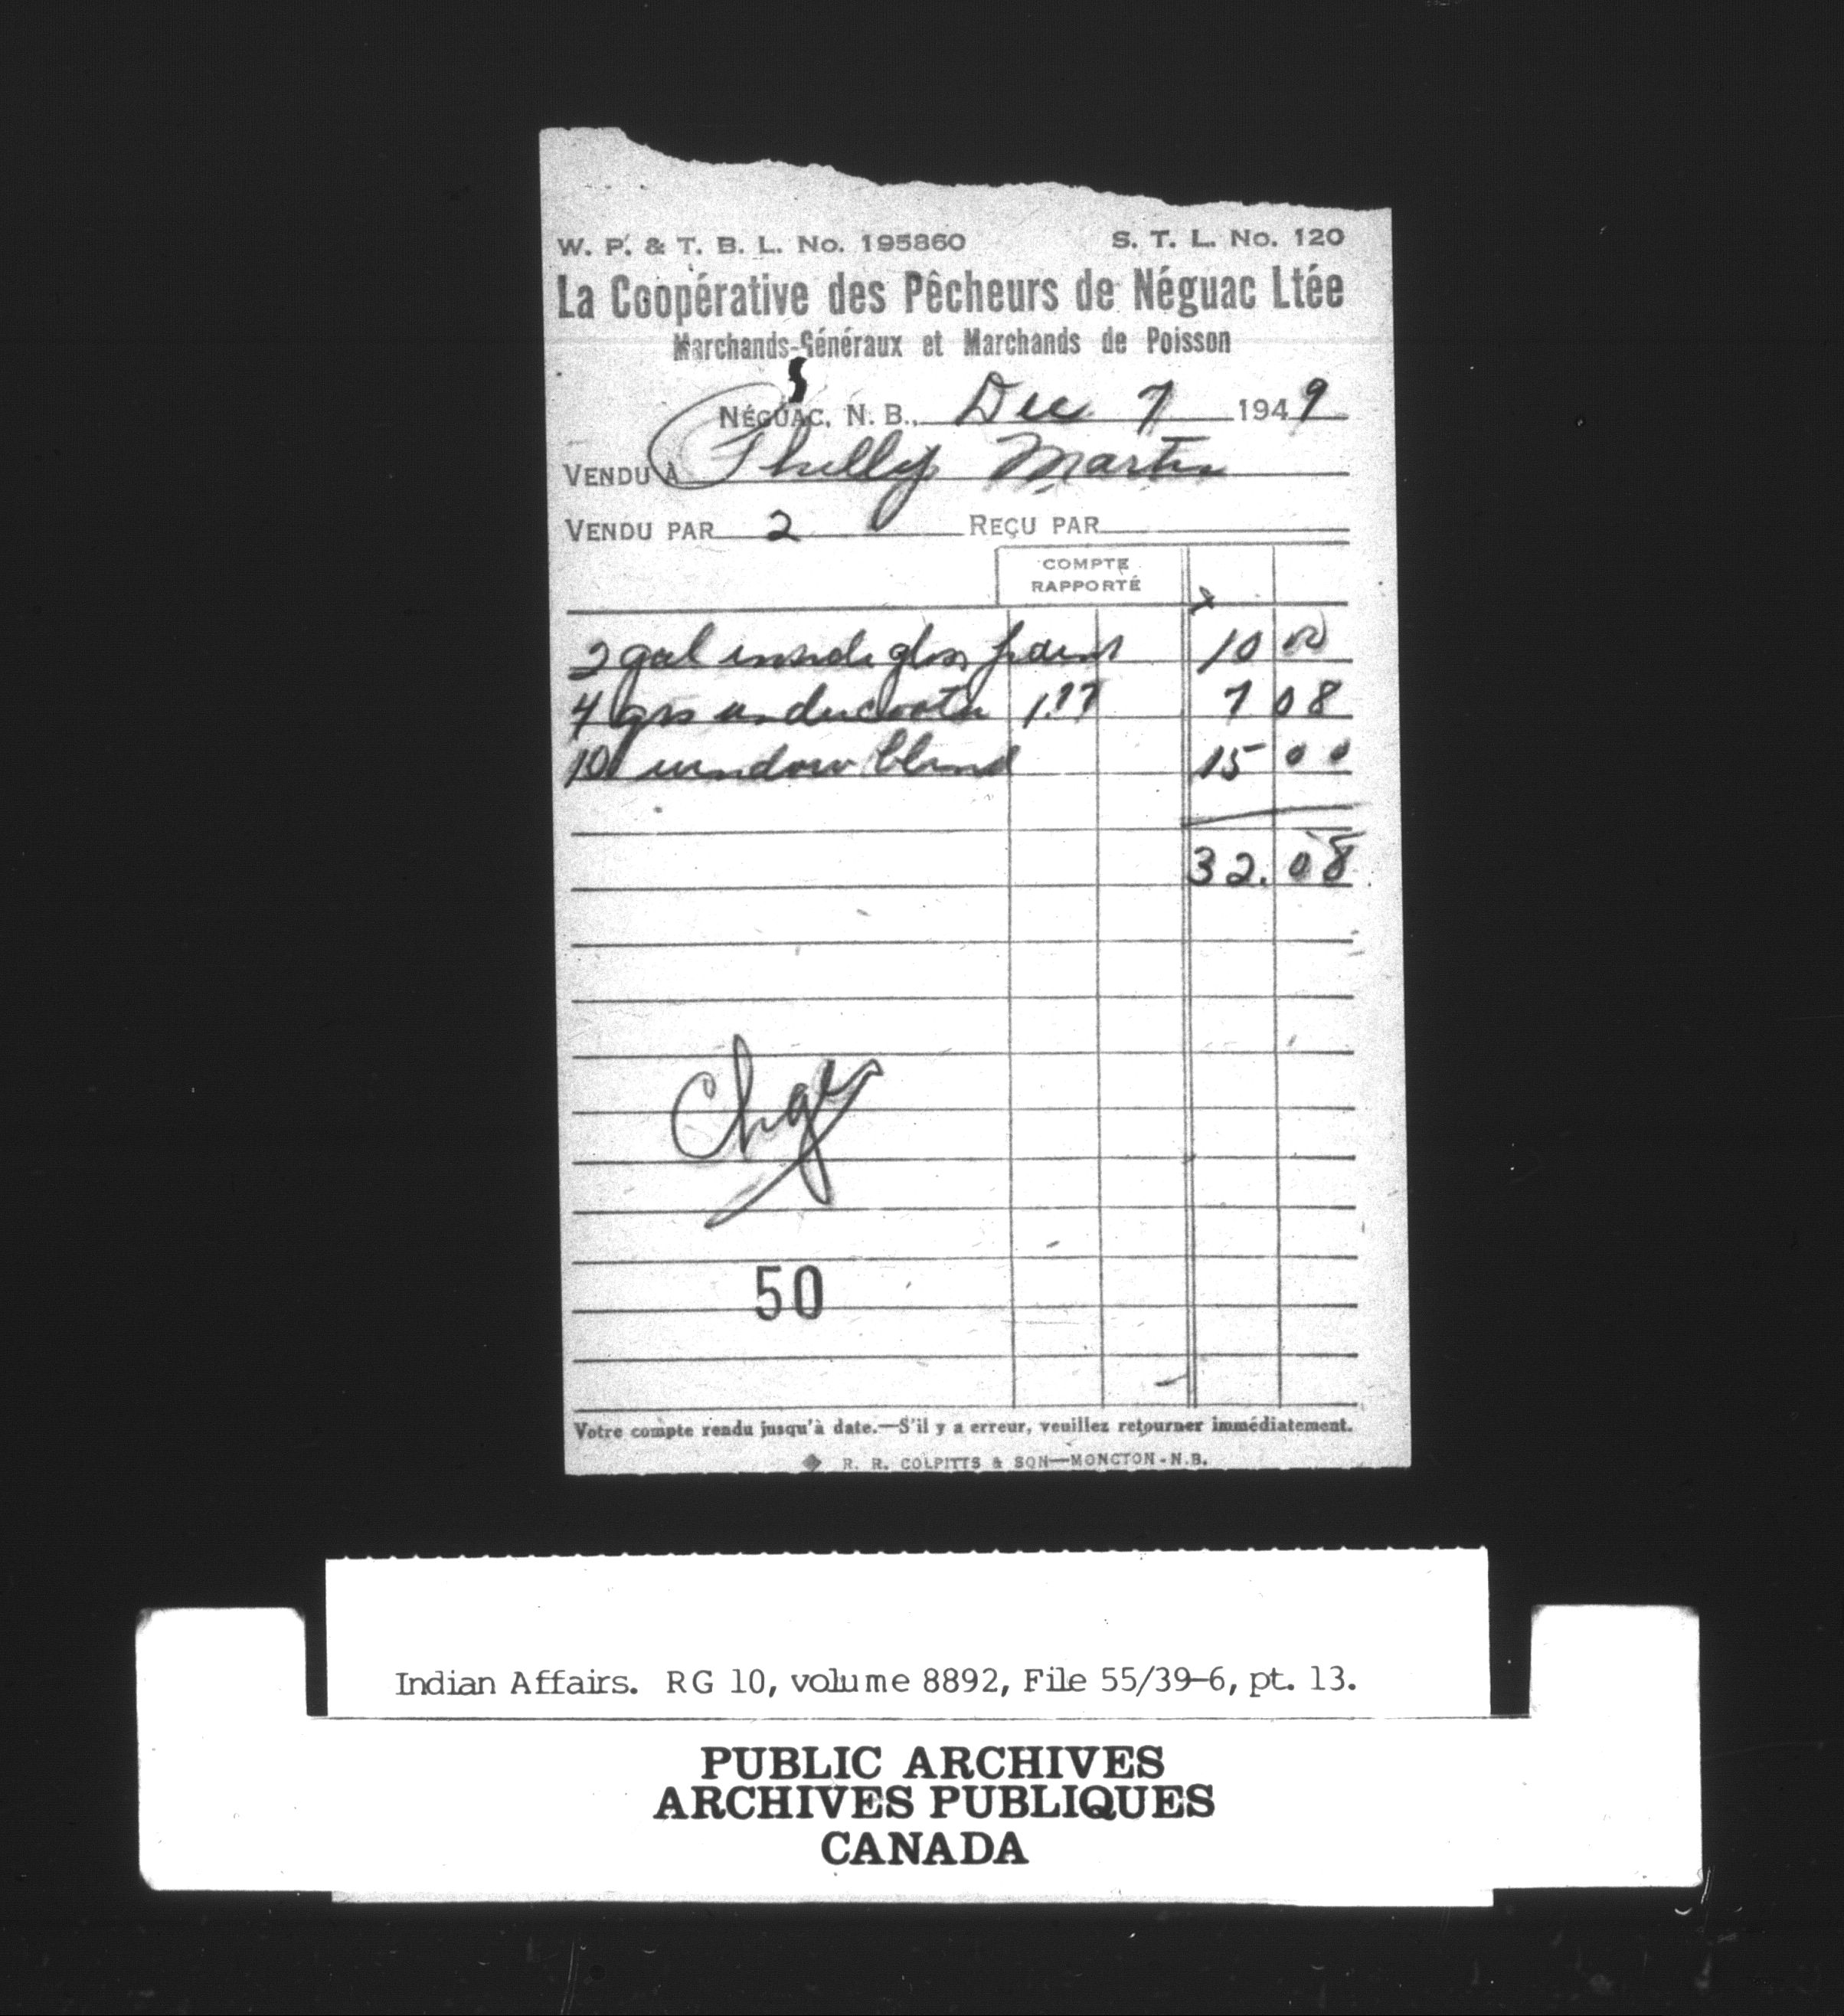 W. P. & T. B. L. No. 195860 S. T. L. No. 120
La Coopérative des Pêcheurs de Néguac Ltée
Marchands-Généraux et Marchands de Poisson
NÉGUAC, N. B., Dec 7 1949
VENDU À Philly Martin
VENDU PAR 2 REÇU PAR
COMPTE
RAPPORTÉ
2 gal inside gloss paint 10 00
4 undercoater 1.77 7 08
10 window blind 15 00
32. 08
Chge
50
Votre compte rendu jusqu'à date.—S'il y a erreur, veuillez retourner immédiatement.
R. R. COLPITTS & SON—MONCTON-N.B.
Indian Affairs. RG 10, volume 8892, File 55/39-6, pt. 13.
PUBLIC ARCHIVES
ARCHIVES PUBLIQUES
CANADA